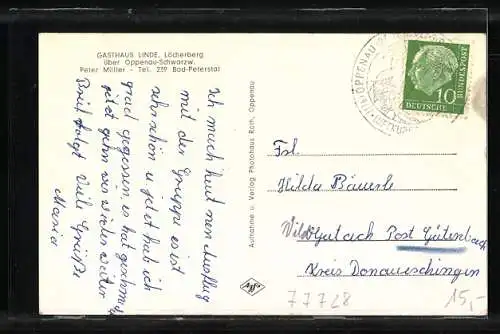 GASTHAUS LINDE, Löcherberg
über Oppenau-Schwarzw.
Peter Müller - Tel. 239 Bad-Peterstal
Ich mach heut nen Ausflug
mit der Gruppe es ist
sehr schön u. jetzt hab ich
grad gegessen, es hat geschmeckt
jetzt gehn wir wieder weiter
Brief folgt Viele Grüße
Maria
Aufnahme u. Verlag Photohaus Roth, Oppenau
OPPENAU
10
DEUTSCHE
BUNDESPOST
Frl.
Hilda Bäuerle
Wildgutach Post Gütenbach
Kreis Donaueschingen
77728
15,-